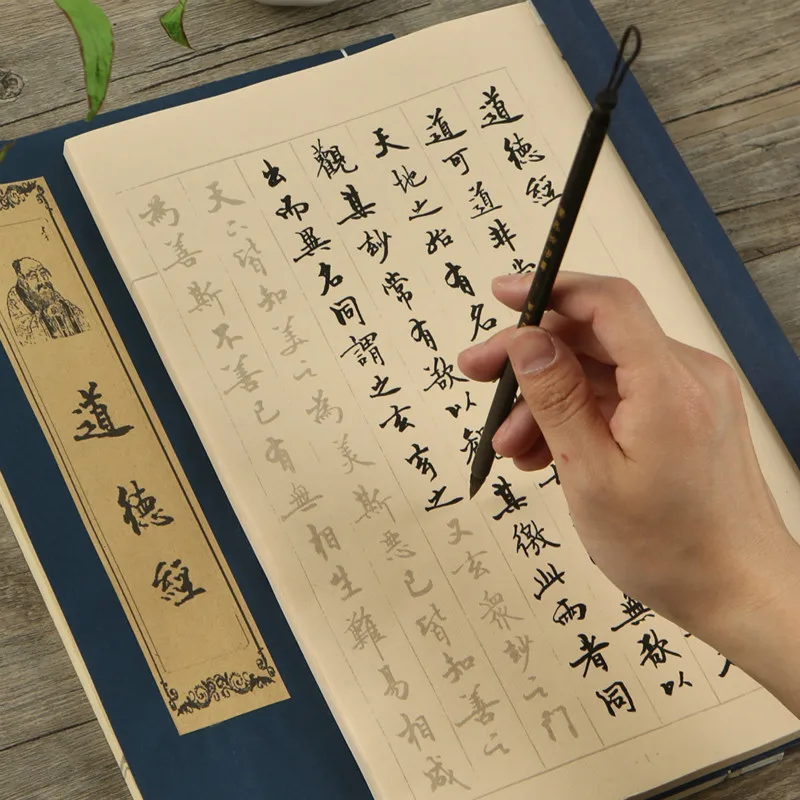 道德經
道可道非
天地之始有名無欲以
觀其妙常有欲以觀其徼此兩者同
出而異名同謂之玄玄之又玄衆妙之門
天下皆知美之為美斯惡已皆知善之
為善斯不善已有無相生難易相成
道德經